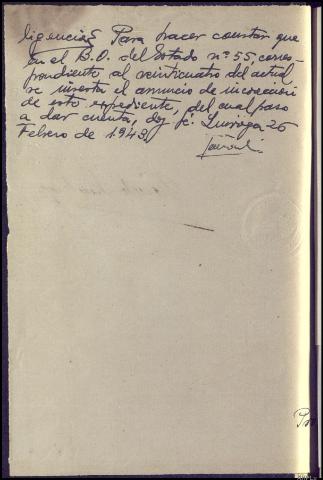 ligencia Para hacer constar que
en el B.O. del Estado nº 55, corres-
pondiente al veinticuatro del actual
se inserta el anuncio de incoación
de este expediente, del cual paso
a dar cuenta, doy fé. Luisiga 26
Febrero de 1943.